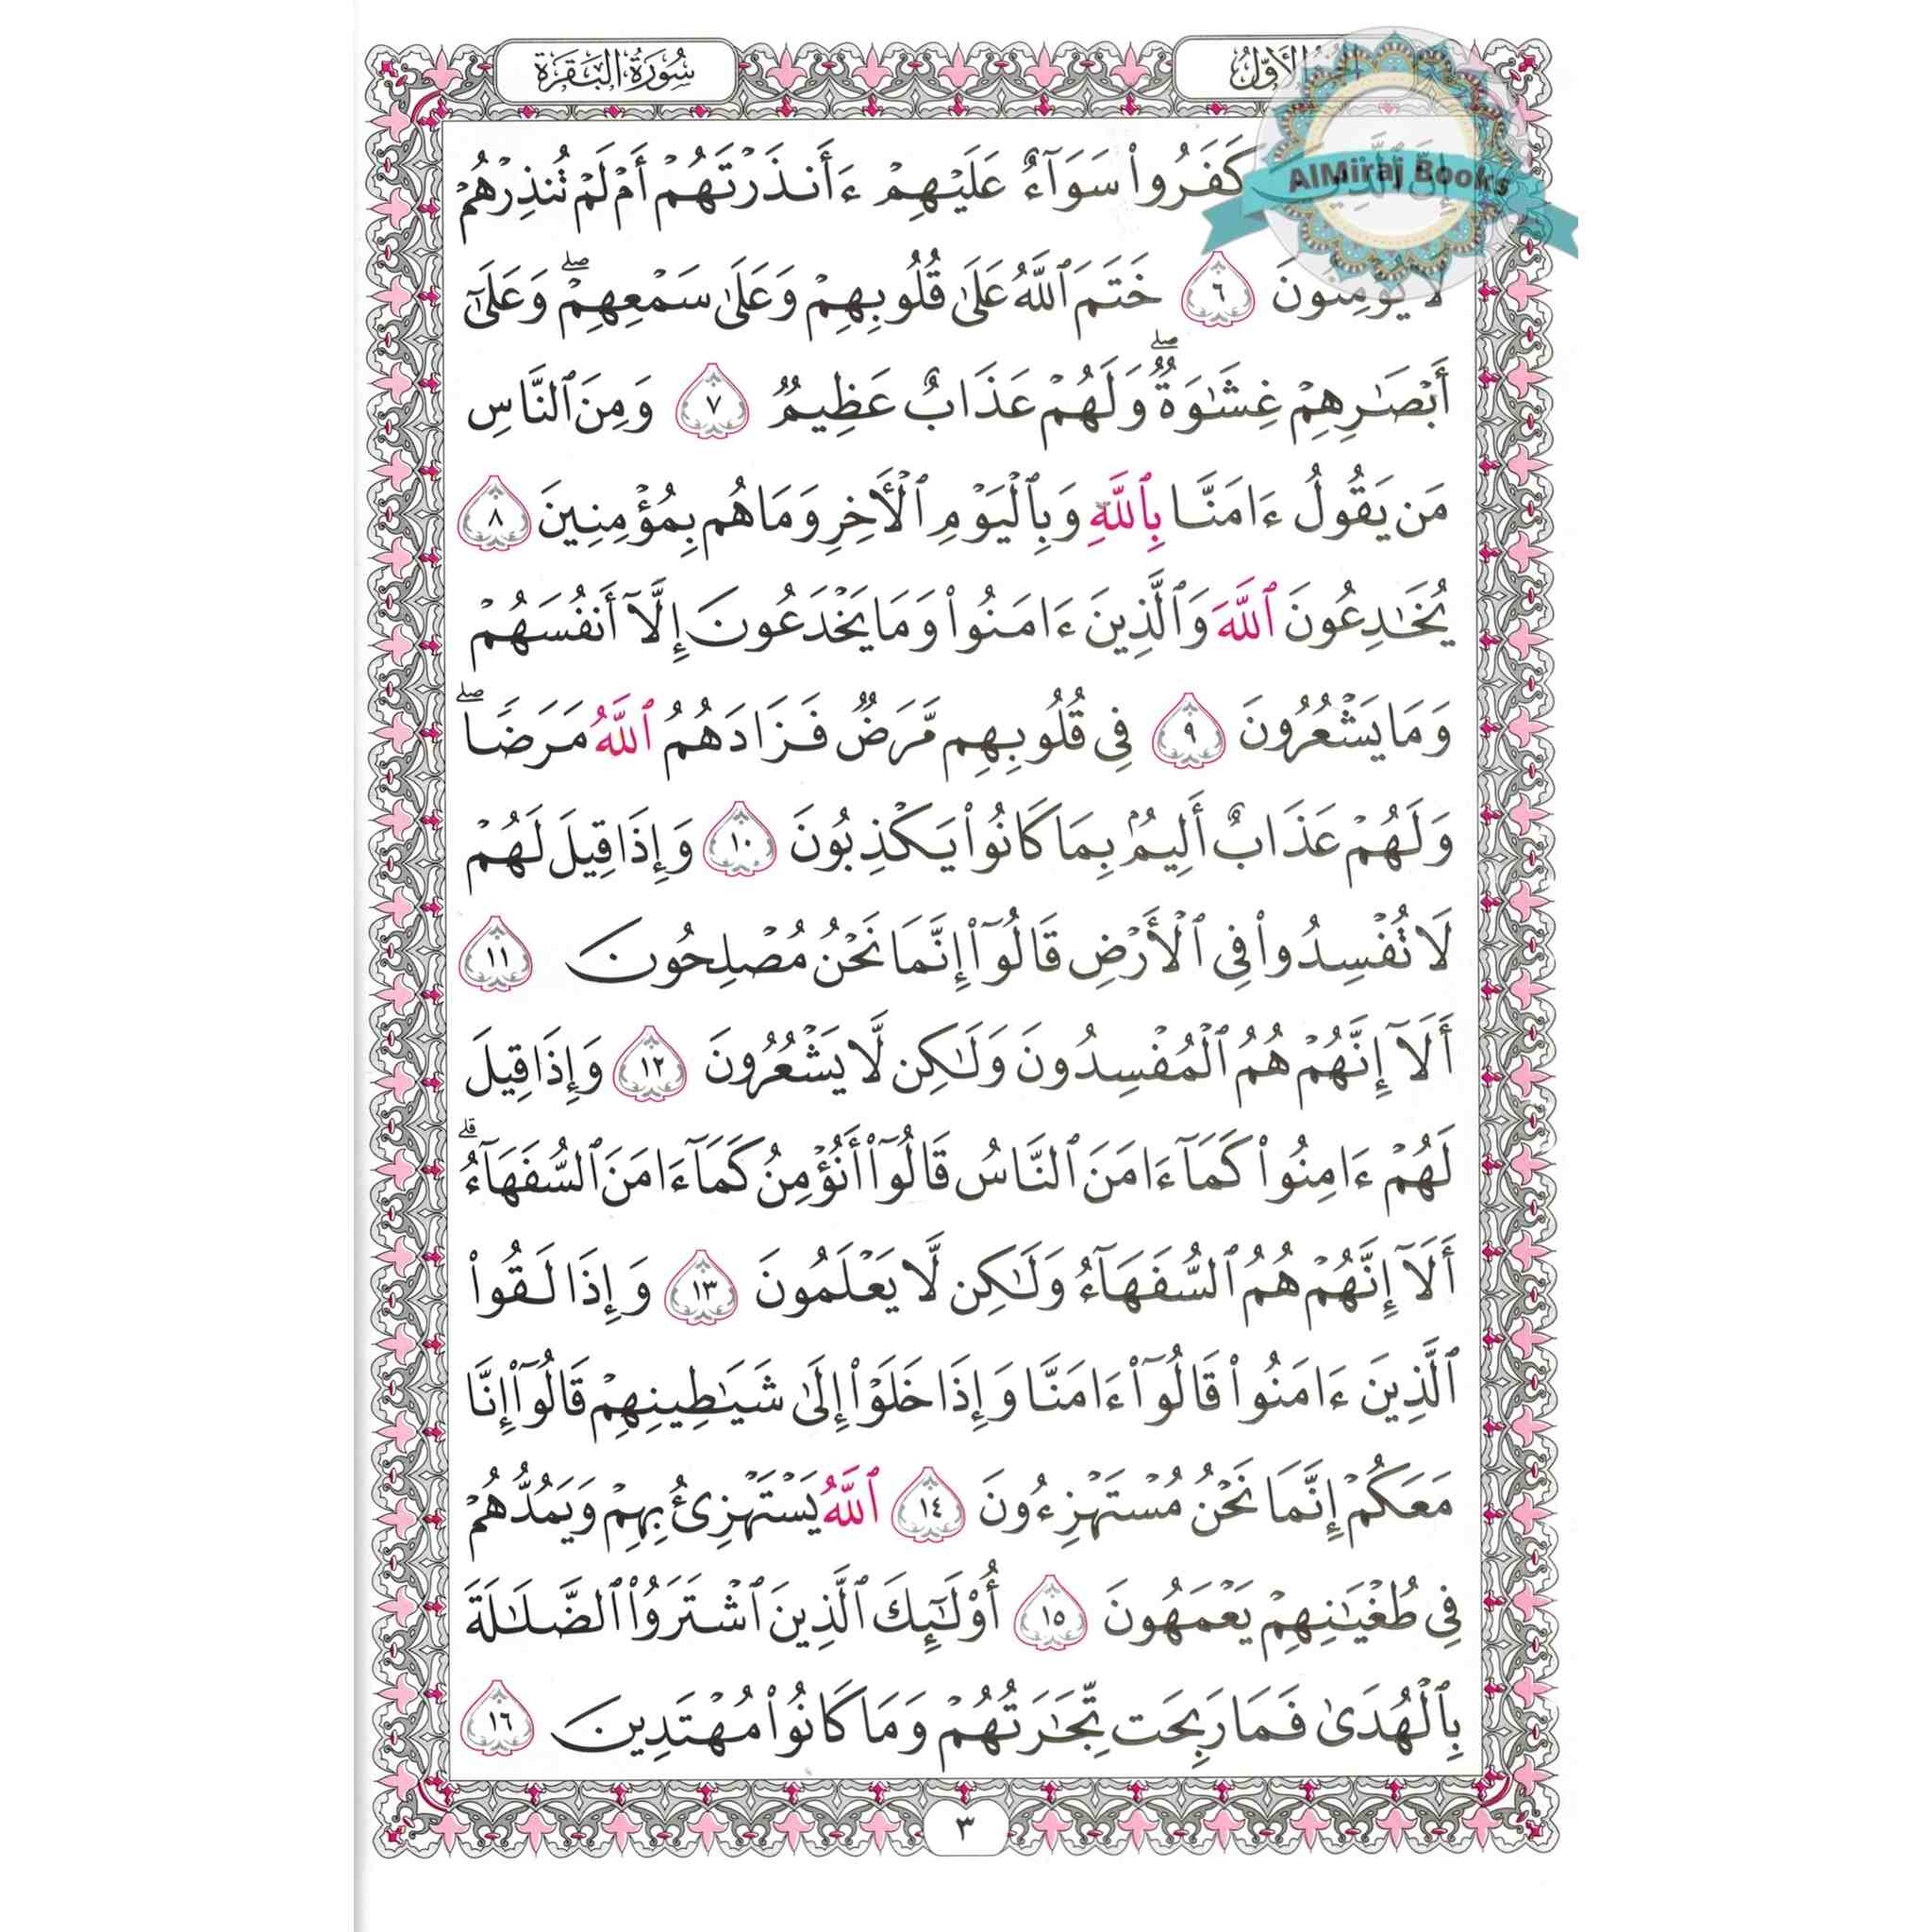 سُورَةُ البَقَرَةِ
الأَوَّلُ
AlMiraj Books
إِنَّ ٱلَّذِينَ كَفَرُوا۟ سَوَآءٌ عَلَيْهِمْ ءَأَنذَرْتَهُمْ أَمْ لَمْ تُنذِرْهُمْ
لَا يُؤْمِنُونَ ٦ خَتَمَ ٱللَّهُ عَلَىٰ قُلُوبِهِمْ وَعَلَىٰ سَمْعِهِمْ ۖ وَعَلَىٰٓ
أَبْصَٰرِهِمْ غِشَٰوَةٌ ۖ وَلَهُمْ عَذَابٌ عَظِيمٌ ٧ وَمِنَ ٱلنَّاسِ
مَن يَقُولُ ءَامَنَّا بِٱللَّهِ وَبِٱلْيَوْمِ ٱلْأَخِرِ وَمَا هُم بِمُؤْمِنِينَ ٨
يُخَٰدِعُونَ ٱللَّهَ وَٱلَّذِينَ ءَامَنُوا۟ وَمَا يَخْدَعُونَ إِلَّآ أَنفُسَهُمْ
وَمَا يَشْعُرُونَ ٩ فِى قُلُوبِهِم مَّرَضٌ فَزَادَهُمُ ٱللَّهُ مَرَضًا ۖ
وَلَهُمْ عَذَابٌ أَلِيمٌۢ بِمَا كَانُوا۟ يَكْذِبُونَ ١٠ وَإِذَا قِيلَ لَهُمْ
لَا تُفْسِدُوا۟ فِى ٱلْأَرْضِ قَالُوٓا۟ إِنَّمَا نَحْنُ مُصْلِحُونَ ١١
أَلَآ إِنَّهُمْ هُمُ ٱلْمُفْسِدُونَ وَلَٰكِن لَّا يَشْعُرُونَ ١٢ وَإِذَا قِيلَ
لَهُمْ ءَامِنُوا۟ كَمَآ ءَامَنَ ٱلنَّاسُ قَالُوٓا۟ أَنُؤْمِنُ كَمَآ ءَامَنَ ٱلسُّفَهَآءُ ۗ
أَلَآ إِنَّهُمْ هُمُ ٱلسُّفَهَآءُ وَلَٰكِن لَّا يَعْلَمُونَ ١٣ وَإِذَا لَقُوا۟
ٱلَّذِينَ ءَامَنُوا۟ قَالُوٓا۟ ءَامَنَّا وَإِذَا خَلَوْا۟ إِلَىٰ شَيَٰطِينِهِمْ قَالُوٓا۟ إِنَّا
مَعَكُمْ إِنَّمَا نَحْنُ مُسْتَهْزِءُونَ ١٤ ٱللَّهُ يَسْتَهْزِئُ بِهِمْ وَيَمُدُّهُمْ
فِى طُغْيَٰنِهِمْ يَعْمَهُونَ ١٥ أُو۟لَٰٓئِكَ ٱلَّذِينَ ٱشْتَرَوُا۟ ٱلضَّلَٰلَةَ
بِٱلْهُدَىٰ فَمَا رَبِحَت تِّجَٰرَتُهُمْ وَمَا كَانُوا۟ مُهْتَدِينَ ١٦
٣